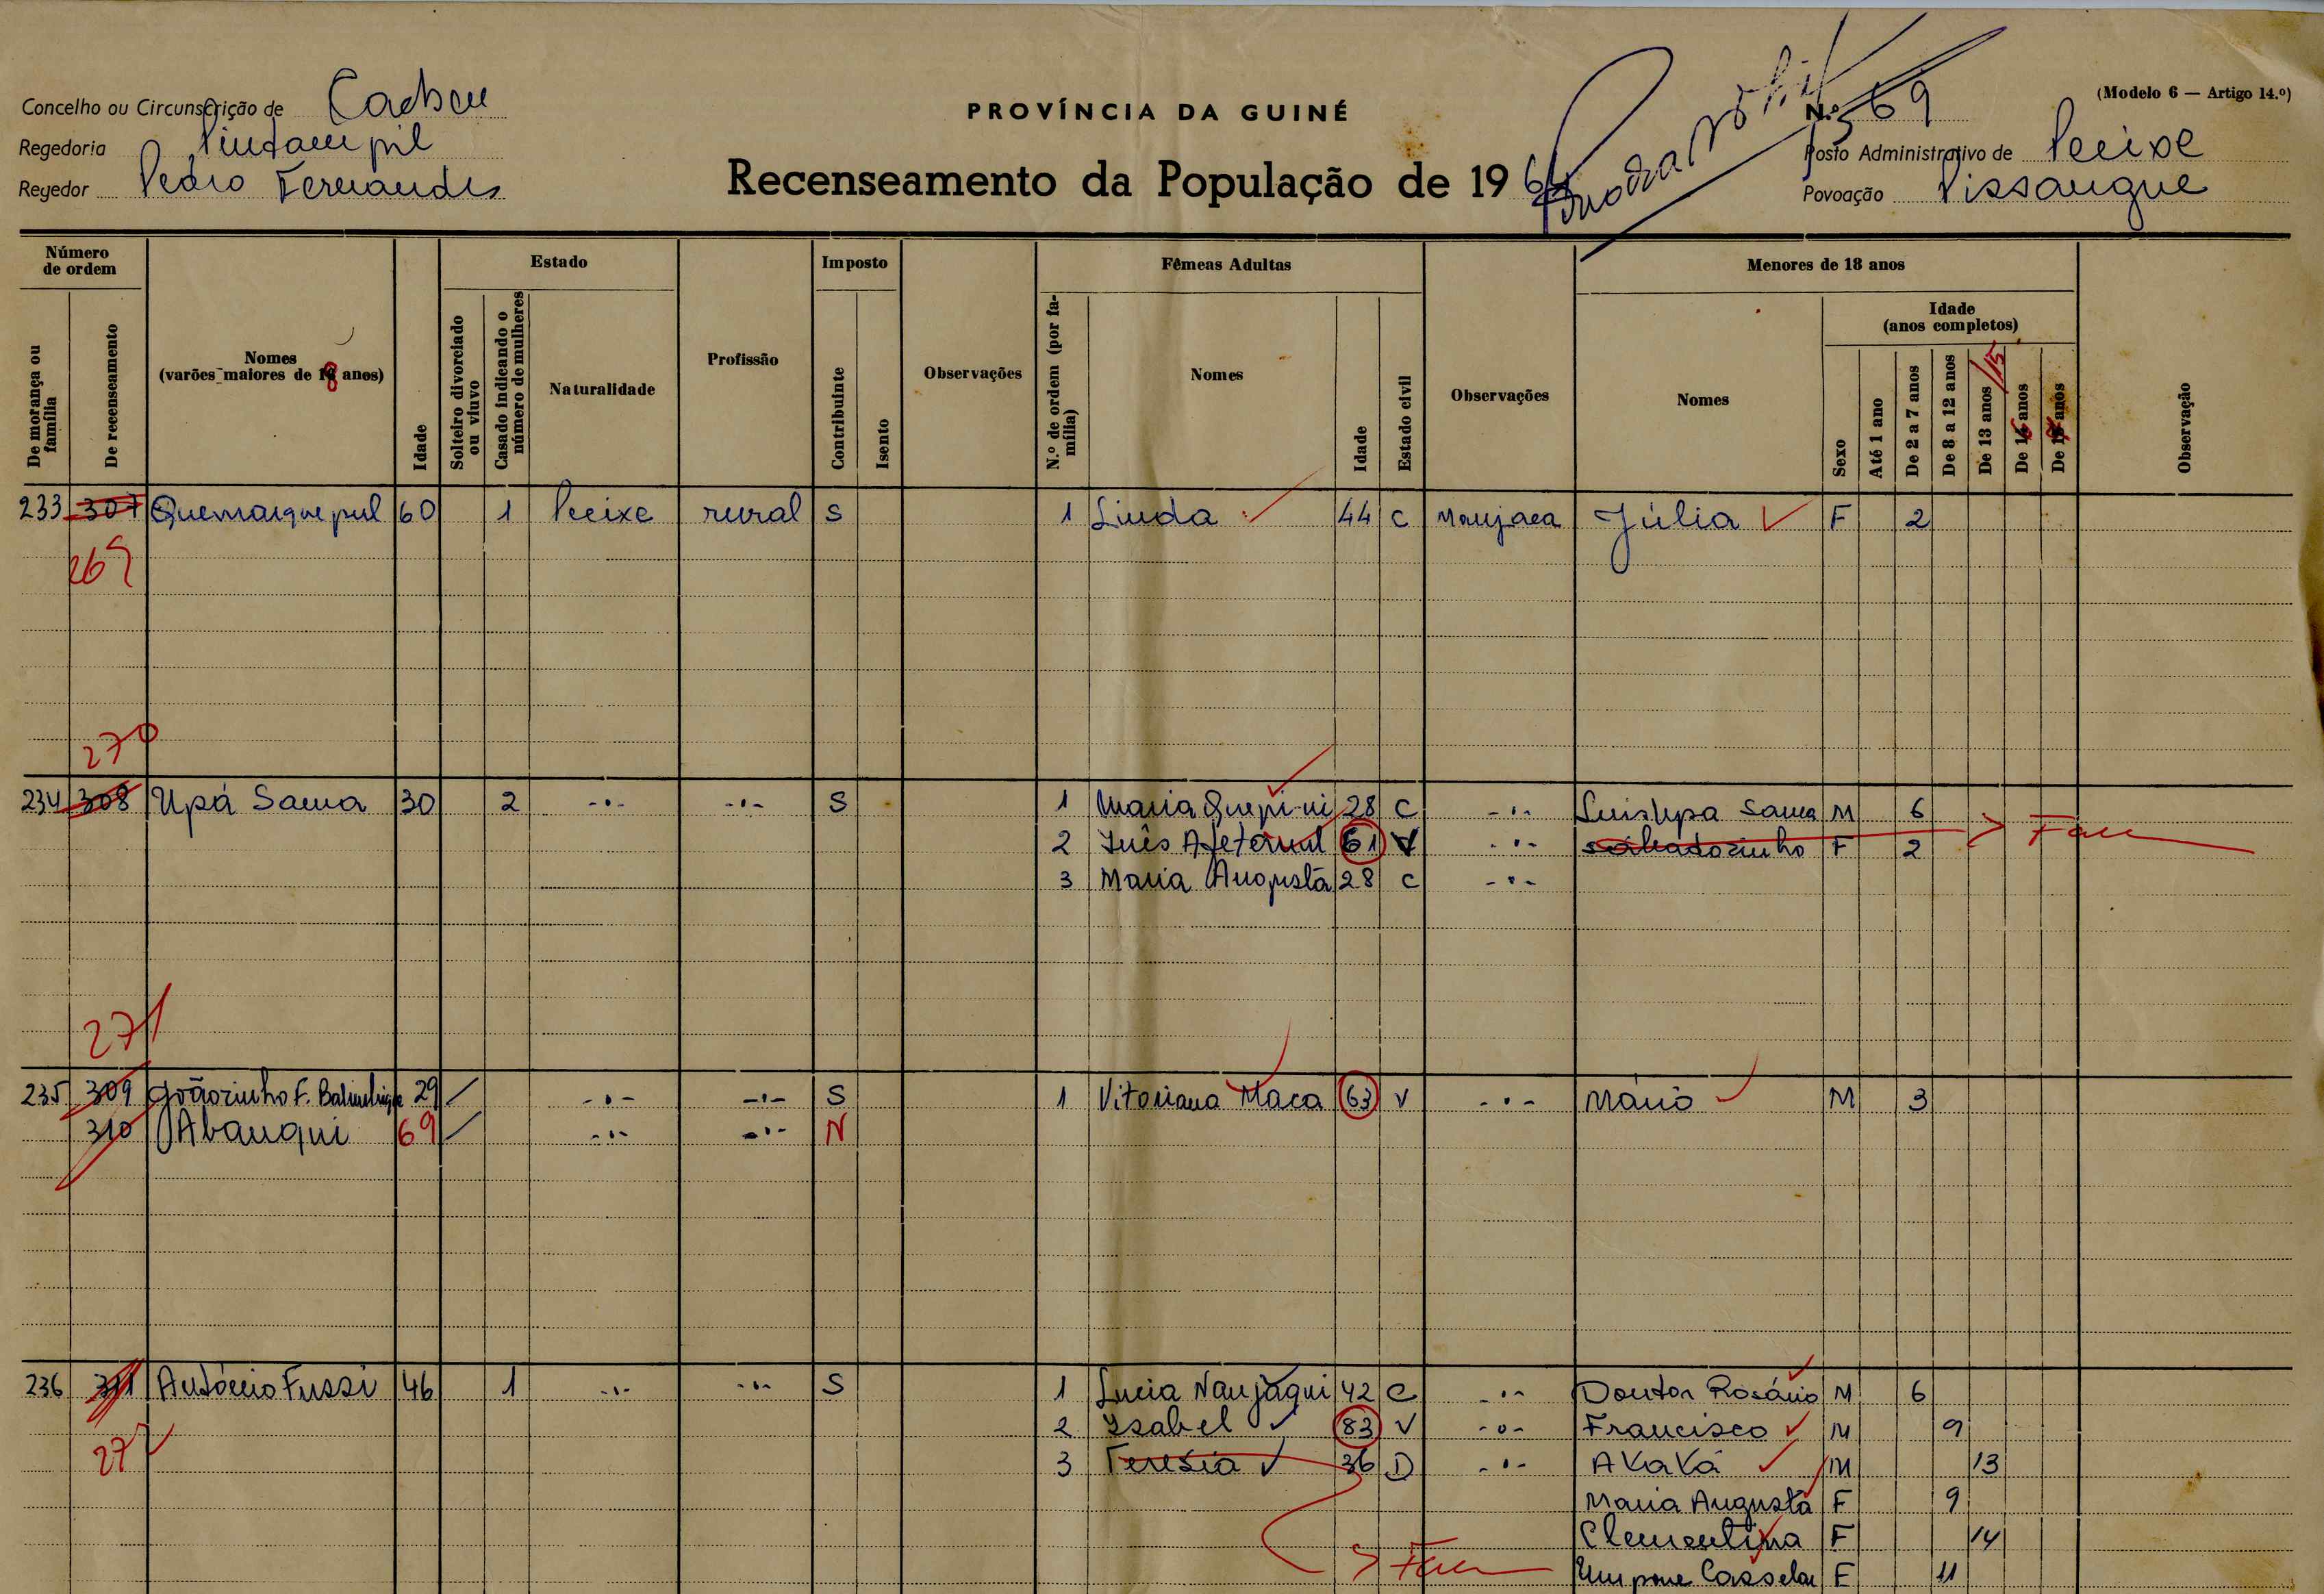 Concelho ou Circunscrição de Cacheu
PROVÍNCIA DA GUINÉ
N.º 69
(Modelo 6 — Artigo 14.º)
Regedoria
Posto Administrativo de Pecixe
Regedor Pedro Fernandes
Recenseamento da População de 19
Povoação Pissangue
Número de ordem
De morança ou família
De recenseamento
Nomes (varões maiores de 18 anos)
Idade
Estado
Solteiro divorciado ou viuvo
Casado indicando o número de mulheres
Naturalidade
Profissão
Imposto
Contribuinte
Isento
Observações
Fêmeas Adultas
N.º de ordem (por família)
Nomes
Idade
Estado civil
Observações
Menores de 18 anos
Nomes
Sexo
Idade (anos completos)
Até 1 ano
De 2 a 7 anos
De 8 a 12 anos
De 13 anos /15
De 16 anos
De 17 anos
Observação
233 307 60 1 Pecixe rural S 1 Linda 44 C Manjaca Júlia F 2
269
270
234 308 Upá Sama 30 2 -"- -"- S 1 Maria 28 C -"- Luis Upa Sama M 6
2 Inês 61 V -"- Sabadozinho F 2
3 Maria Augusta 28 C -"-
271
235 309 Joãozinho F. 29 -"- -"- S 1 Vitoriana Maca 63 V -"- Mário M 3
310 Abanqui 69 -"- -"- N
236 311 António Fussi 46 1 -"- -"- S 1 Lucia Nanjaqui 42 C -"- Doutor Rosário M 6
272
2 Isabel 83 V -"- Francisco M 9
3 Teresia 36 D -"- AKaKá M 13
Maria Augusta F 9
Clementina F 14
F 11